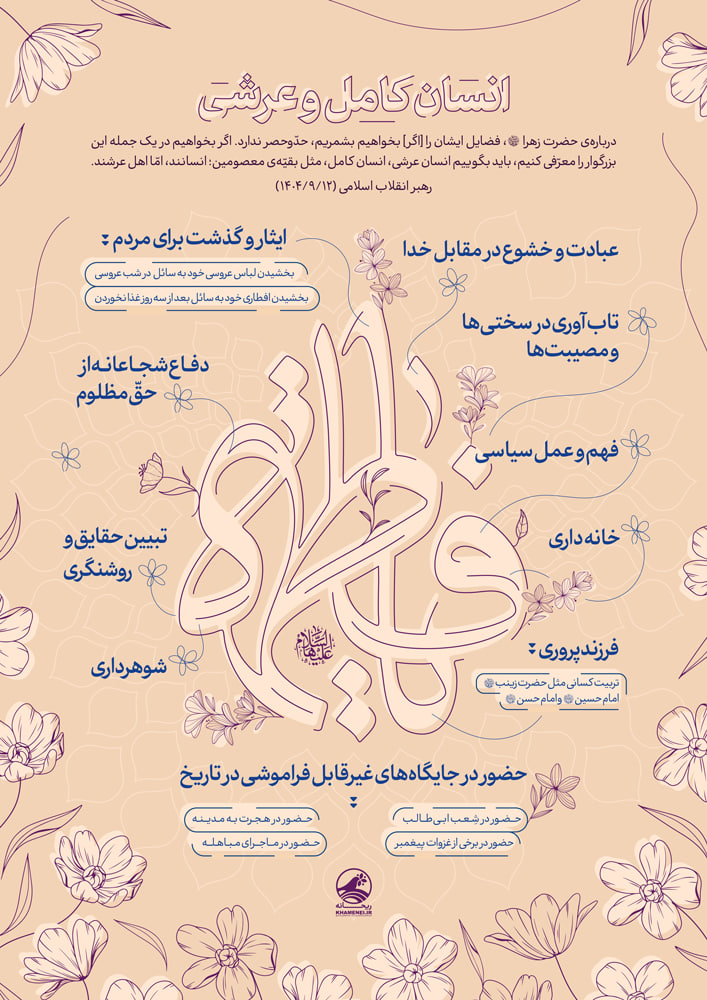 انسان کامل و عرشی
درباره‌ی حضرت زهرا ، فضایل ایشان را [اگر] بخواهیم بشمریم، حدّوحصر ندارد. اگر بخواهیم در یک جمله این
بزرگوار را معرّفی کنیم، باید بگوییم انسان عرشی، انسان کامل، مثل بقیّه‌ی معصومین؛ انسانند، امّا اهل عرشند.
رهبر انقلاب اسلامی (۱۴۰۴/۹/۱۲)
عبادت و خشوع در مقابل خدا
تاب‌آوری در سختی‌ها
و مصیبت‌ها
فهم و عمل سیاسی
خانه‌داری
فرزندپروری
تربیت کسانی مثل حضرت زینب
امام حسین و امام حسن
ایثار و گذشت برای مردم
بخشیدن لباس عروسی خود به سائل در شب عروسی
بخشیدن افطاری خود به سائل بعد از سه روز غذا نخوردن
دفاع شجاعانه از
حقّ مظلوم
تبیین حقایق و
روشنگری
شوهرداری
فاطمه
علیهاالسّلام
حضور در جایگاه‌های غیرقابل فراموشی در تاریخ
حضور در شعب ابی‌طالب
حضور در هجرت به مدینه
حضور در برخی از غزوات پیغمبر
حضور در ماجرای مباهله
ریحانه
KHAMENEI.IR